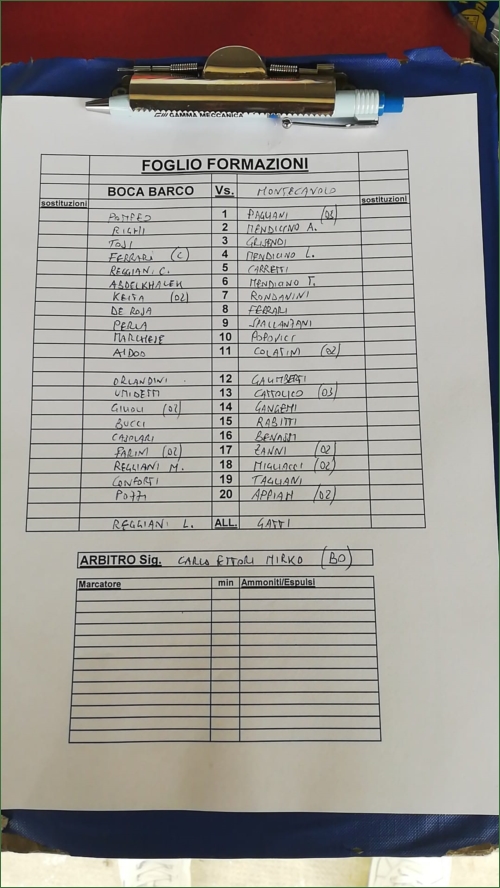 GAMMA MECCANICA
FOGLIO FORMAZIONI
BOCA BARCO Vs. MONTECAVOLO
sostituzioni sostituzioni
POMPEO 1 PAGLIANI
RIGHI 2 MENDICINO A.
TOSI 3 GRISENDI
FERRARI (C) 4 MENDICINO L.
REGGIANI C. 5 CARRETTI
ABDELKHALEK 6 MENDICINO F.
KEITA (02) 7 RONDANINI
DE ROSA 8 FERRARI
PERLA 9 SPALLANZANI
MARCHESE 10 POPOVICI
AIDOO 11 COLATINI (02)
ORLANDINI 12 GALIMBERTI
UMIDETTI 13 CATTOLICO (03)
GIUOLI (02) 14 GANGEMI
BUCCI 15 RABITTI
CASOLARI 16 BENASSI
FARINI (02) 17 ZANNI (02)
REGGIANI M. 18 MIGLIACCI (02)
CONFORTI 19 TAGLIANI
POZZI 20 APPIAH (02)
REGGIANI L. ALL. GATTI
ARBITRO Sig. CARLO ETTORI MIRKO (BO)
Marcatore min Ammoniti/Espulsi